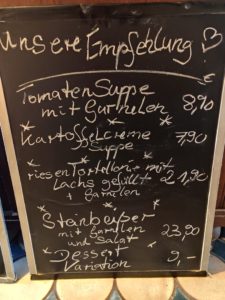 Unsere Empfehlung!
€
Tomaten Suppe
mit Garnelen 8,90
*
Kartoffelcreme 7,90
Suppe
*
riesen Tortelloni mit
Lachs gefüllt 21,90
+ Garnelen
*
Steinbeißer 23,90
mit Garnelen
und Salat
*
Dessert
Variation 9,-